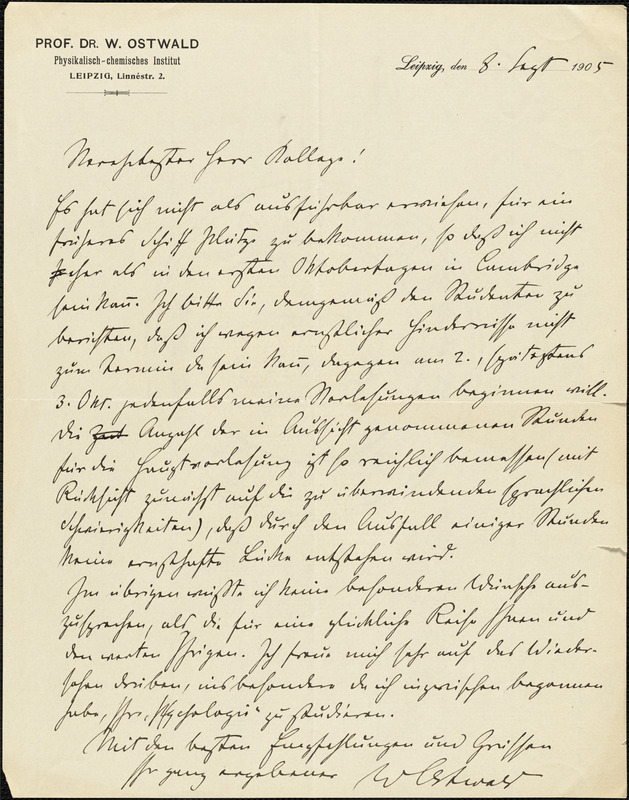 PROF. DR. W. OSTWALD
Physikalisch-chemisches Institut
LEIPZIG, Linnéstr. 2.
Leipzig, den 8. Sept 1905
Verehrtester Herr Kollege!
Es hat sich nicht als ausführbar erwiesen, für ein
früheres Schiff Plätze zu bekommen, so daß ich nicht
eher als in den ersten Oktobertagen in Cambridge
sein kan̄. Ich bitte Sie, demgemäß den Studenten zu
berichten, daß ich wegen ernstlicher Hindernisse nicht
zum Termin da sein kan̄, dagegen am 2., spätestens
3. Okt. jedenfalls meine Vorlesungen beginnen will.
Die Anzahl der in Aussicht genommenen Stunden
für die Hauptvorlesung ist so reichlich bemessen (mit
Rücksicht zunächst auf die zu überwindenden sprachlichen
Schwierigkeiten), daß durch den Ausfall einiger Stunden
keine ernsthafte Lücke entstehen wird.
Im übrigen wüßte ich keine besonderen Wünsche aus-
zusprechen, als die für eine glückliche Reise Ihnen und
den werten Ihrigen. Ich freue mich sehr auf das Wieder-
sehen drüben, insbesondere da ich inzwischen begonnen
habe, Ihre „Psychologie“ zu studieren.
Mit den besten Empfehlungen und Grüssen
Ihr ganz ergebener W Ostwald